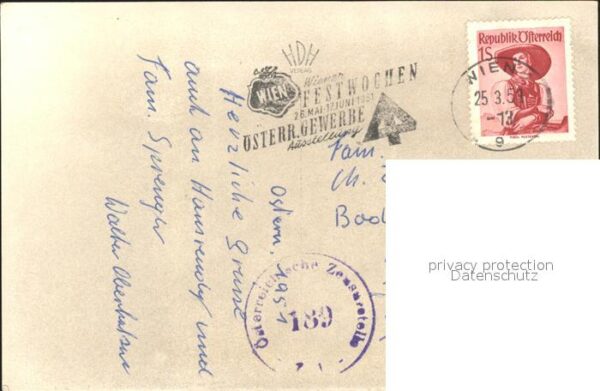 HDH
VERLAG
WIEN
Wiener
FESTWOCHEN
26.MAI-17.JUNI 1951
ÖSTERR. GEWERBE
Ausstellung
Republik Österreich
1S
WIEN
25.3.51
-13
9
Fam.
Ch.
Bad
Ostern, 1951
Herzliche Grüsse
auch an Hansruedy und
Fam. Sprenger
Walter
Österreichische Zensurstelle
189
privacy protection
Datenschutz